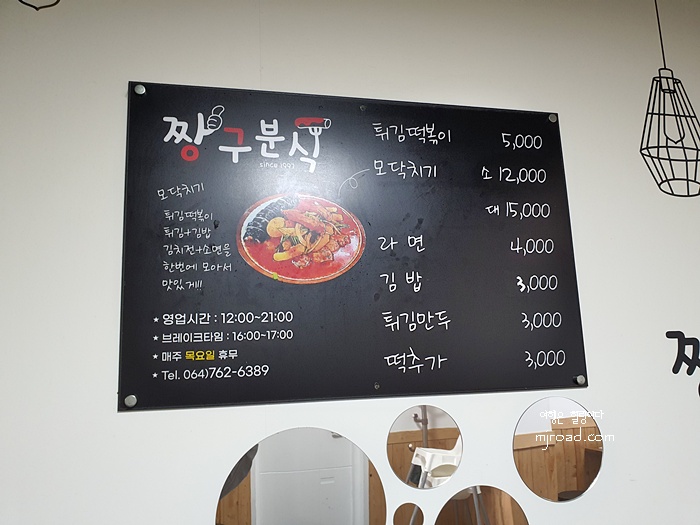 짱구분식
since 1997
모닥치기
튀김떡볶이
튀김+김밥
김치전+소면을
한번에 모아서
맛있게!!
★ 영업시간 : 12:00~21:00
★ 브레이크타임 : 16:00~17:00
★ 매주 목요일 휴무
★ Tel. 064)762-6389
튀김떡볶이 5,000
모닥치기 소 12,000
대 15,000
라면 4,000
김밥 3,000
튀김만두 3,000
떡추가 3,000
짱
여행은 힐링이다
mjroad.com